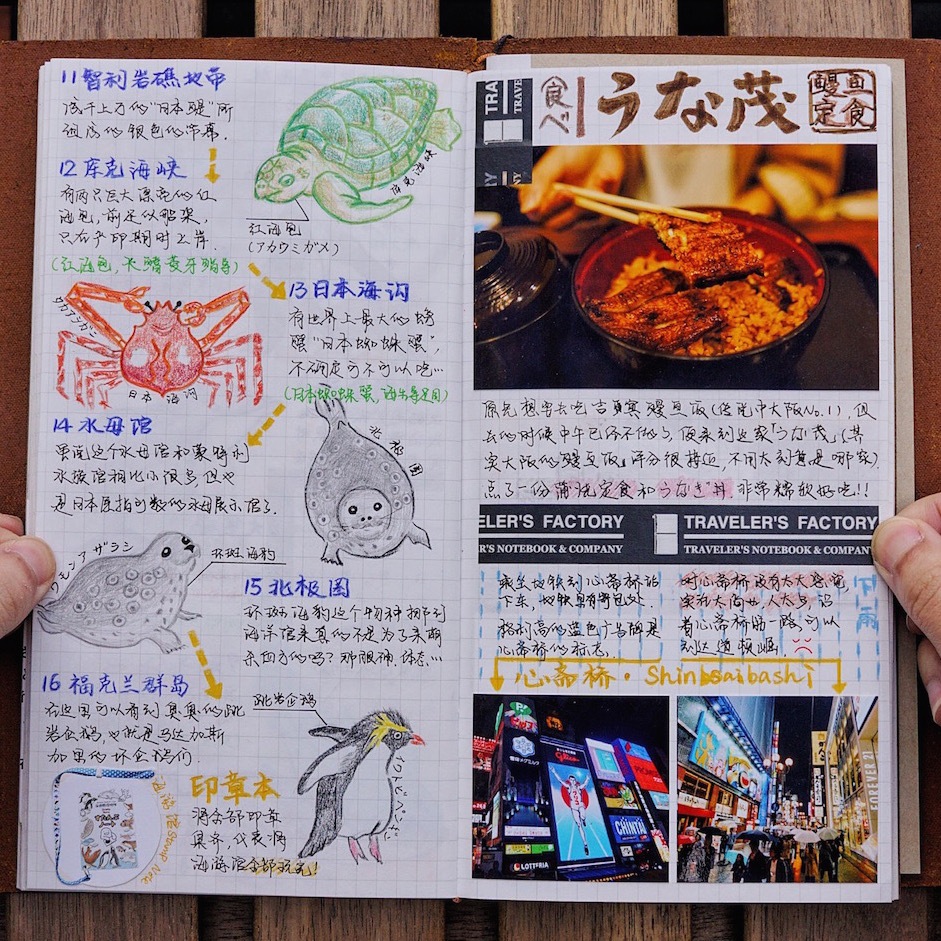 11 智利岩礁地帯
成千上万的"日本鳀"所
组成的银色的帘幕.
12 库克海峡
有两只巨大漂亮的红
海龟,前足似船桨,
只在产卵期时上岸.
(红海龟,大鳍麦牙鲷等)
库克海峡
红海龟
(アカウミガメ)
13 日本海沟
有世界上最大的螃
蟹"日本蜘蛛蟹",
不确定可不可以吃…
(日本蜘蛛蟹,
タカアシガニ
日本海沟
14 水母馆
虽说这个水母馆和蒙特利
水族馆相比小很多,但也
是日本屈指可数的水母展示馆了.
北极圈
ワモンアザラシ
环斑海豹
15 北极圈
环斑海豹这个物种搬到
海洋馆来真的不是为了来萌
杀四方的吗?那眼神,体态…
16 福克兰群岛
在这里可以看到真真的跳
岩企鹅,也就是马达加斯
加里的坏企鹅们
跳岩企鹅
イワトビペンギン
印章本
将全部印章
集齐,代表将
海游馆全部玩完!
海游馆 Stamp Note
TRA
TRAVE
食べ
うな茂
鰻
定食
原先想要去吃吉真寅鳗鱼饭(据说中大阪No.1),但
去的时候中午已经不做了,便来到这家「うな茂」(其
实大阪的鳗鱼饭」评分很接近,不用太刻意是哪家).
点了一份蒲烧定食和うなぎ丼 非常糯软好吃!!
ELER'S FACTORY
ER'S NOTEBOOK & COMPANY
TRAVELER'S FACTORY
TRAVELER'S NOTEBOOK & COMPANY
乘坐地铁到心斋桥站
下车,地铁里有
格利高的蓝色广告牌是
心斋桥的标志.
对心斋桥没有太大感觉
实在太商业,人太多,沿
着心斋桥筋一路可以
到达道顿堀
下雨
心斋桥・Shinsaibashi
雪印メグミルク
Glico
CHINTAI
LOTTERIA
FOREVER 21